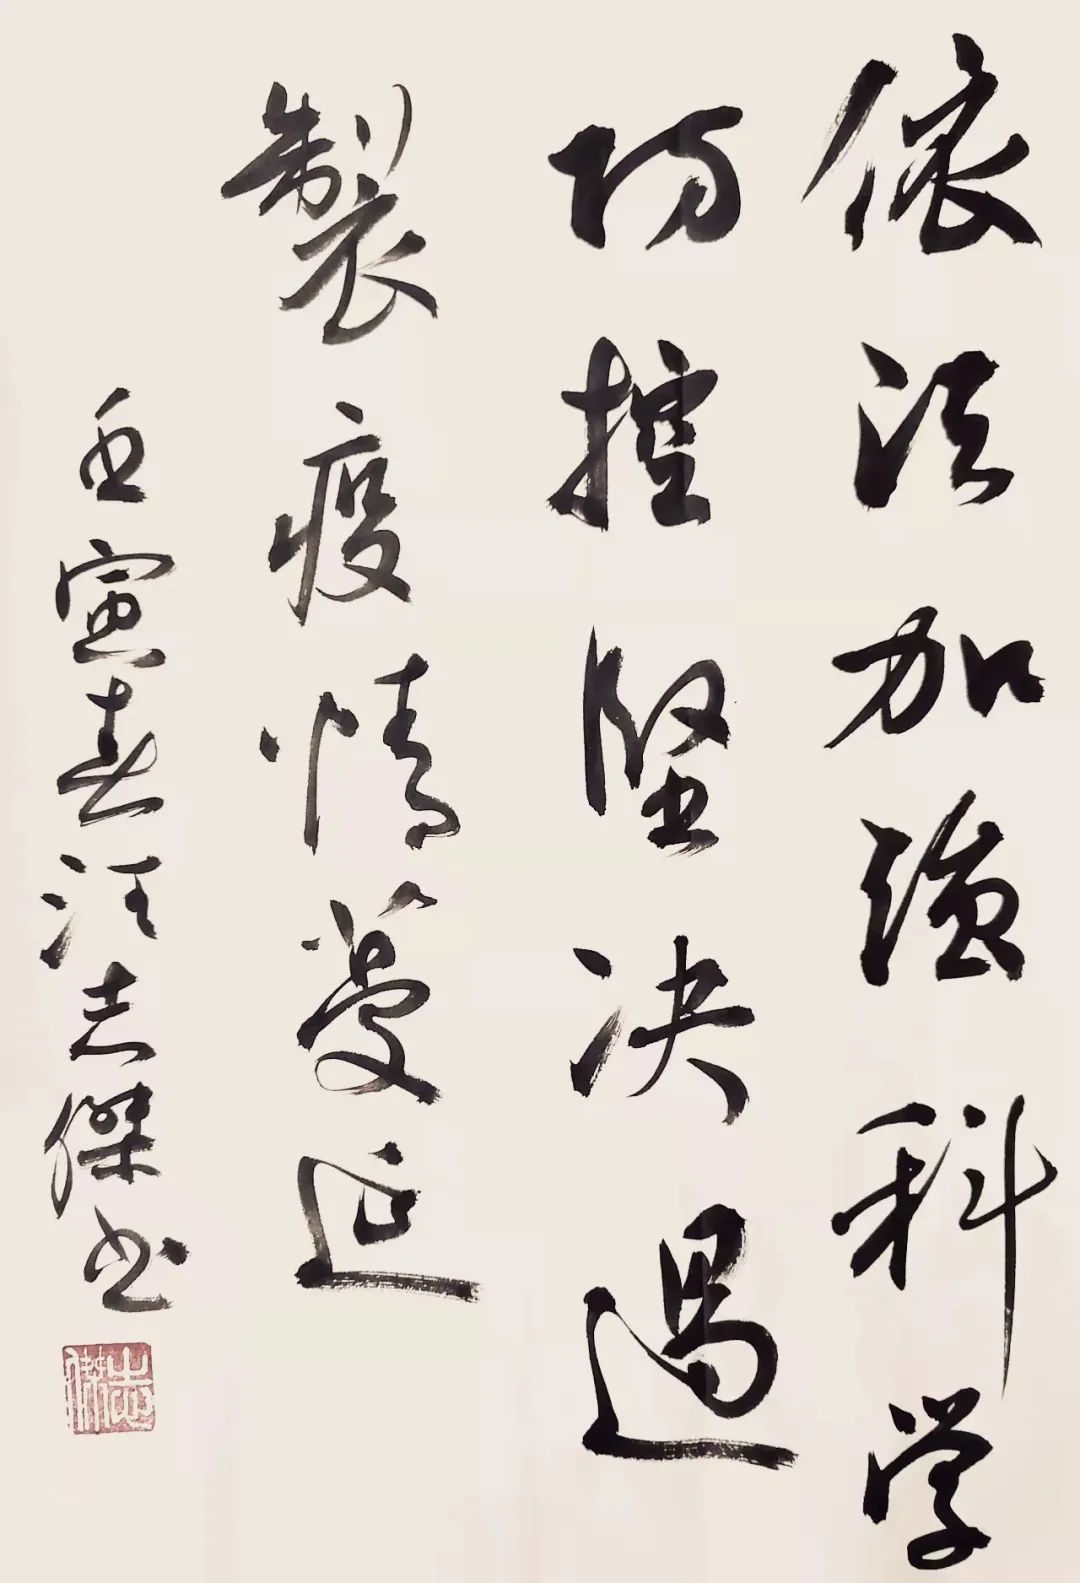 依法加强科学
防控坚决遏
製疫情蔓延
壬寅春汪志傑书
志傑